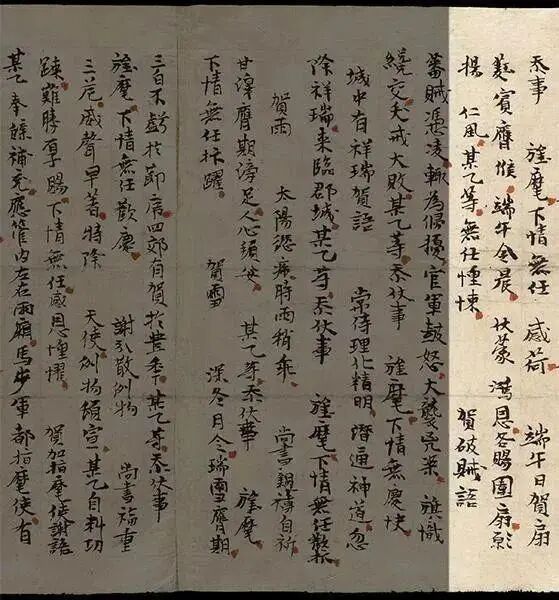 忝事 旌麾下情無任 感荷 端午日賀扇
蕤賓膺候端午令晨 伏蒙 鴻恩各賜團扇願
揚 仁風某乙等無任惶悚 賀破賊語
蕃賊憑凌輙為侵擾官軍鼓怒大襲兇渠旗幟
纔交夭戎大敗某乙等忝伏事 旌麾下情無慶快
城中有祥瑞賀語 常侍理化精明潛通神道忽
除祥瑞來臨郡城某乙等忝伏事 旌麾下情無任歡抃
賀雨 太陽愆 時雨稍乖 尚書親禱自祈
甘澤膺期滂足人心頓安 某乙等忝伏事 旌麾
下情無任抃躍 賀雪 深冬月令瑞雪膺期
三白不虧於節席四郊自賀於豐年某乙等忝伏事
旌麾下情無任歡慶 謝 散例物 尚書福重
三危威聲早著特降 天使例物傾宣某乙自料功
踈難勝厚賜下情無任感恩惶懼 賀加指麾使謝語
某乙奉 補充應管內左右兩廂馬步軍都指麾使自